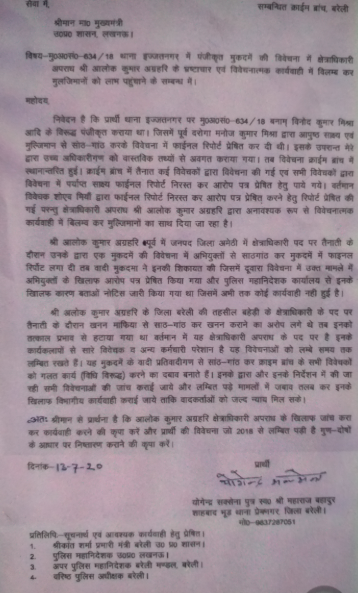 सेवा में,
सम्बन्धित क्राईम ब्रांच, बरेली
श्रीमान मा० मुख्यमंत्री
उ०प्र० शासन, लखनऊ।
विषय-मु०अ०सं०-634/18 थाना इज्जतनगर में पंजीकृत मुकदमें की विवेचना में क्षेत्राधिकारी
अपराध श्री आलोक कुमार अग्रहरि के भ्रष्टाचार एवं विवेचनात्मक कार्यवाही में विलम्ब कर
मुलजिमानों को लाभ पहुंचाने के सम्बन्ध में।
महोदय,
निवेदन है कि प्रार्थी थाना इज्जतनगर पर मु०अ०सं०-634/18 बनाम् विनोद कुमार मिश्रा
आदि के विरूद्ध पंजीकृत कराया था। जिसमें पूर्व दरोगा मनोज कुमार मिश्रा द्वारा आपुष्ठ साक्ष्य एवं
मुल्जिमान से सॉठ-गांठ करके विवेचना में फाईनल रिपोर्ट प्रेषित कर दी थी। इसके उपरान्त मेरे
द्वारा उच्च अधिकारीगण को वास्तविक तथ्यों से अवगत कराया गया। तब विवेचना क्राईम ब्रांच में
स्थानान्तरित हुई। क्राईम ब्रांच में तैनात कई विवेचकों द्वारा विवेचना की गई एवं सभी विवेचकों द्वारा
विवेचना में पर्याप्त साक्ष्य फाईनल रिपोर्ट निरस्त कर आरोप पत्र प्रेषित हेतु पाये गये। वर्तमान
विवेचक शोएब मियाँ द्वारा फाईनल रिपोर्ट निरस्त कर आरोप पत्र प्रेषित करने हेतु रिपोर्ट प्रेषित की
गई परन्तु क्षेत्राधिकारी अपराध श्री आलोक कुमार अग्रहरि द्वारा अनावश्यक रूप से विवेचनात्मक
कार्यवाही में विलम्ब कर मुल्जिमानों का साथ दिया जा रहा है।
श्री आलोक कुमार अग्रहरि पूर्व में जनपद जिला अमेठी में क्षेत्राधिकारी पद पर तैनाती के
दौरान उनके द्वारा एक मुकदमें की विवेचना में अभियुक्तों से साठगांठ कर मुकदमें में फाईनल
रिर्पोट लगा दी तब वादी मुकदमा ने इनकी शिकायत की जिसमें दुवारा विवेचना में उक्त मामले में
अभियुक्तों के खिलाफ आरोप पत्र प्रेषित किया गया और पुलिस महानिदेशक कार्यालय से इनके
खिलाफ कारण बताओ नोटिस जारी किया गया था जिसमें अभी तक कोई कार्यवाही नही हुई है।
श्री आलोक कुमार अग्रहरि के जिला बरेली की तहसील बहेड़ी के क्षेत्राधिकारी के पद पर
तैनाती के दौरान खनन माफिया से साठ-गांठ कर खनन कराने का आरोप लगे थे तब इनको
तत्काल प्रभाव से हटाया गया था वर्तमान में यह क्षेत्राधिकारी अपराध के पद पर है इनके
कार्यकलापों से सारे विवेचक व अन्य कर्मचारी परेशान है यह विवेचनाओं को लम्बे समय तक
लम्बित रखते हैं। यह मुकदमें के वादी प्रतिवादीगण से सांठ-गांठ कर क्राइम ब्रांच के सभी विवेचकों
को गलत कार्य (विधि विरूद्ध) करने का दबाव बनाते हैं। इनके द्वारा और इनके निर्देशन में की जा
रही सभी विवेचनाओं की जांच कराई जाये और लम्बित पड़े मामलों में जबाव तलब कर इनके
खिलाफ विभागीय कार्यवाही कराई जाये ताकि वादकर्ताओं को जल्द न्याय मिल सके।
अतः श्रीमान से प्रार्थना है कि आलोक कुमार अग्रहरि क्षेत्राधिकारी अपराध के खिलाफ जांच करा
कर कार्यवाही करने की कृपा करें और प्रार्थी की विवेचना जो 2018 से लम्बित पड़ी है गुण-दोषों
के आधार पर निस्तारण कराने की कृपा करें।
दिनांक-13-7-20
प्रार्थी
योगेन्द्र सक्सेना पुत्र स्व० श्री महाराज बहादुर
शाहबाद भूड़ थाना प्रेमनगर, जिला बरेली।
मो०-9837287051
प्रतिलिपि:-सूचनार्थ एवं आवश्यक कार्यवाही हेतु प्रेषित।
1. श्रीकांत शर्मा प्रभारी मंत्री बरेली उ० प्र० शासन।
2. पुलिस महानिदेशक उ०प्र० लखनऊ।
3. अपर पुलिस महानिदेशक बरेली मण्डल, बरेली।
4. वरिष्ठ पुलिस अधीक्षक बरेली।